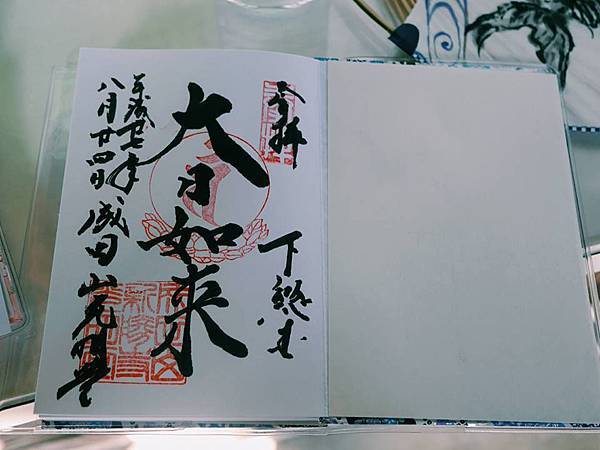 奉拝
下総國
大日如来
平成廿七年
八月廿四日 成田山光明堂